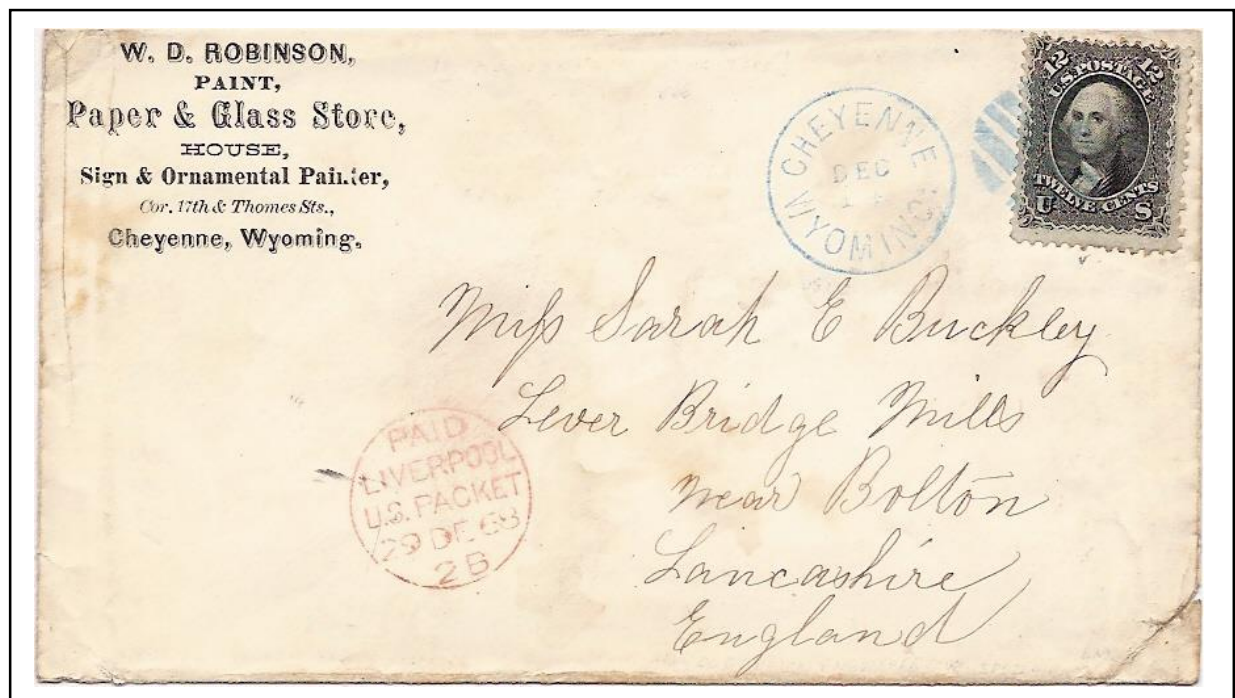 W. D. ROBINSON,
PAINT,
Paper & Glass Store,
HOUSE,
Sign & Ornamental Painter,
Cor. 17th & Thomes Sts.,
Cheyenne, Wyoming.
12 12
U.S. POSTAGE
TWELVE CENTS
U S
CHEYENNE
DEC
WYOMING.
Miss Sarah E Buckley
Lever Bridge Mills
near Bolton
Lancashire
England
PAID
LIVERPOOL
U.S. PACKET
29 DE 68
2B